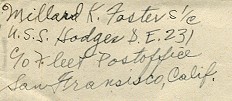 Millard K. Foster S 1/c
U.S.S. Hodges D.E. 231
c/o Fleet Postoffice
San Fransisco, Calif.